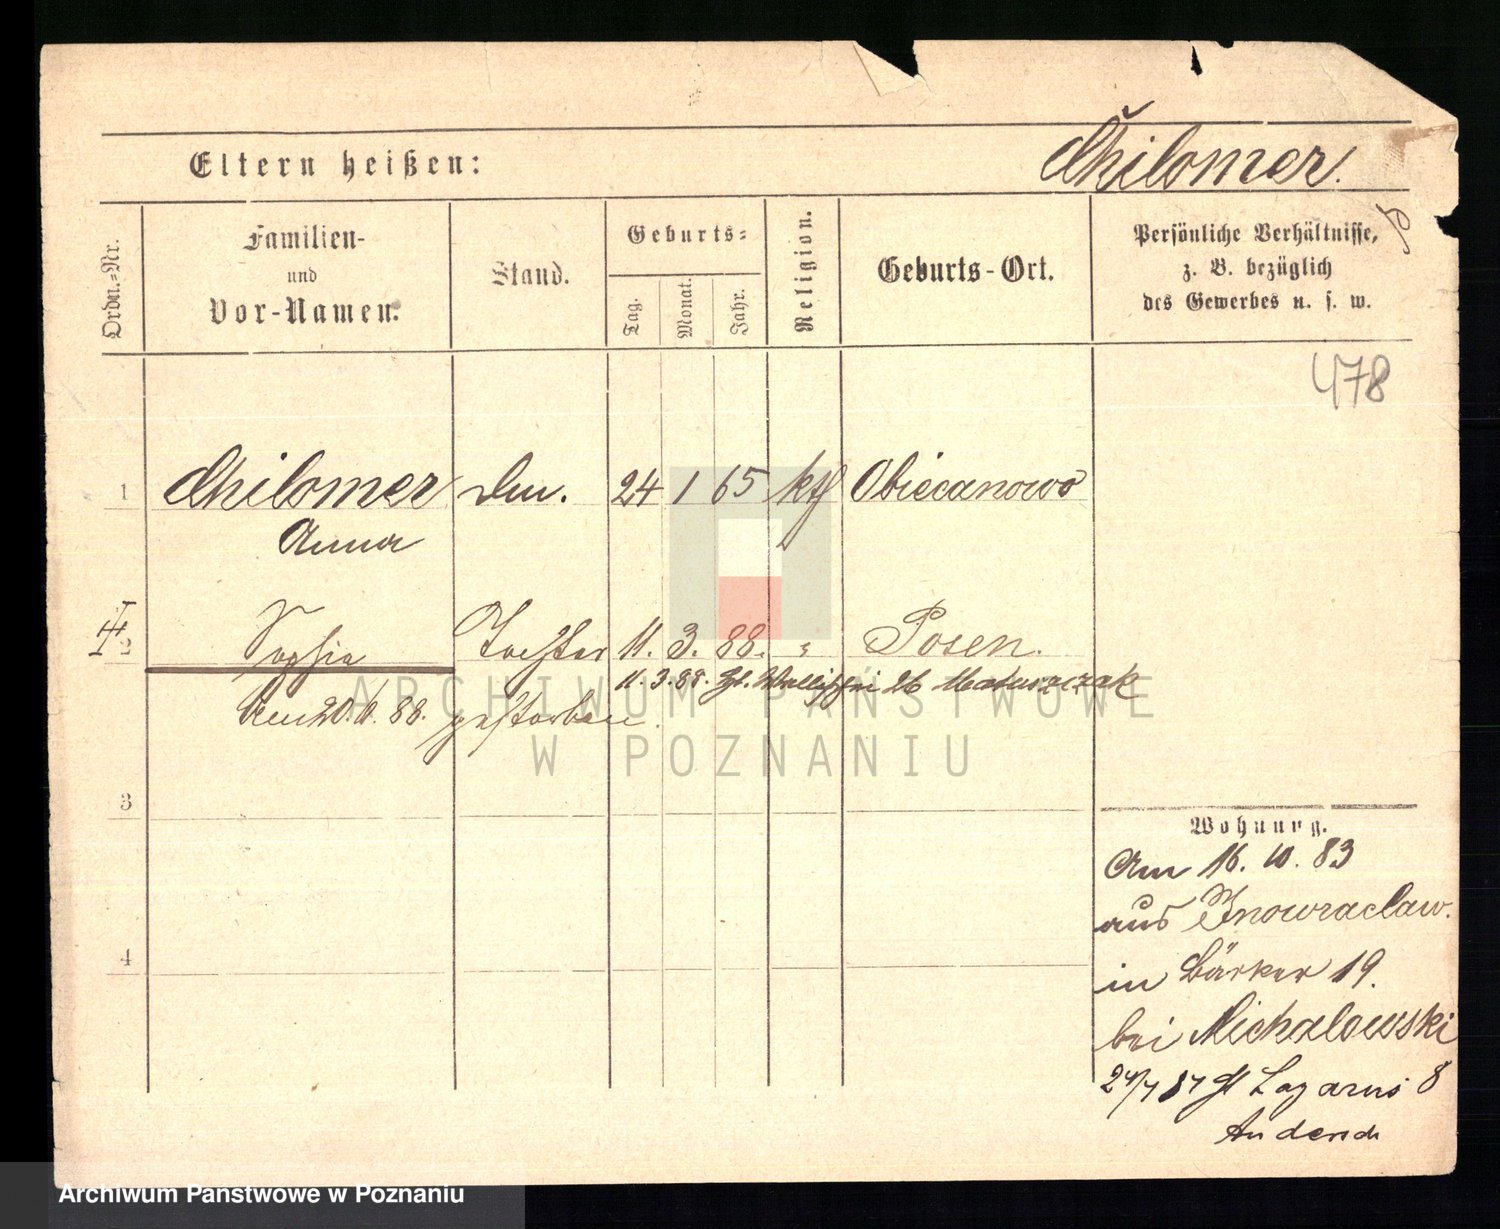 Eltern heißen:
Chilomer.
Ordn.-Nr.
Familien-
und
Vor-Namen.
Stand.
Geburts-
Tag.
Monat.
Jahr.
Religion.
Geburts-Ort.
Persönliche Verhältnisse,
z. B. bezüglich
des Gewerbes u. s. w.
478
1 Chilomer 24 1 65 kth Obiecanowo
Anna
2 Sophia Tochter 11. 3. 88. " Posen.
11. 3. 88. St. Wallischei 26 Matuszczak
Am 20. 6. 88. gestorben.
3
4
Wohnung.
Am 16. 10. 83
aus Inowraclaw.
in Bärker 19.
bei Michalowski
24/7 87 St Lazarus 8
ARCHIWUM PAŃSTWOWE
W POZNANIU
Archiwum Państwowe w Poznaniu